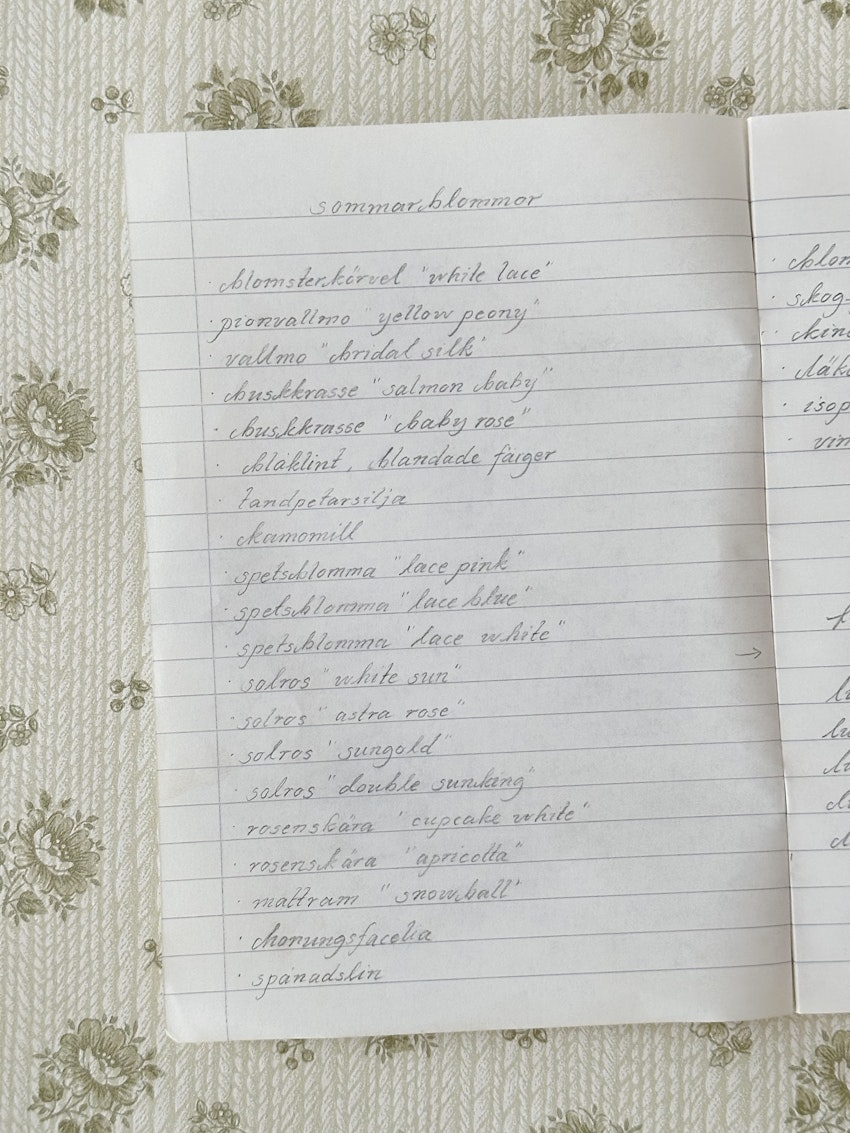 sommarblommor
· blomsterkörvel "white lace"
· pionvallmo "yellow peony"
· vallmo "bridal silk"
· buskkrasse "salmon baby"
· buskkrasse "baby rose"
· blåklint, blandade färger
· tandpetarsilja
· kamomill
· spetsblomma "lace pink"
· spetsblomma "lace blue"
· spetsblomma "lace white"
· solros "white sun"
· solros "astra rose"
· solros "sungold"
· solros "double sunking"
· rosenskära "cupcake white"
· rosenskära "apricotta"
· mattram "snowball"
· honungsfacelia
· spånadslin
→